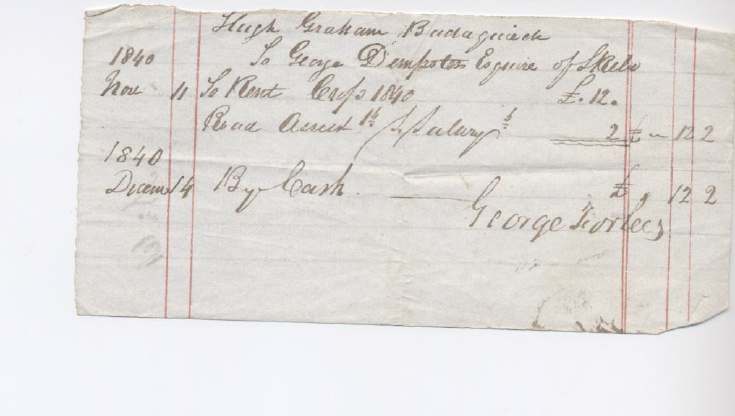 Hugh Graham Badaguieck
1840 To George Dempster Esquire of Skelo
Nov 11 To Rent Crop 1840 £. 12.
Road 1/- 2 £ " 12 2
1840
Decem 14 By Cash £ , 12 2
George Forbes